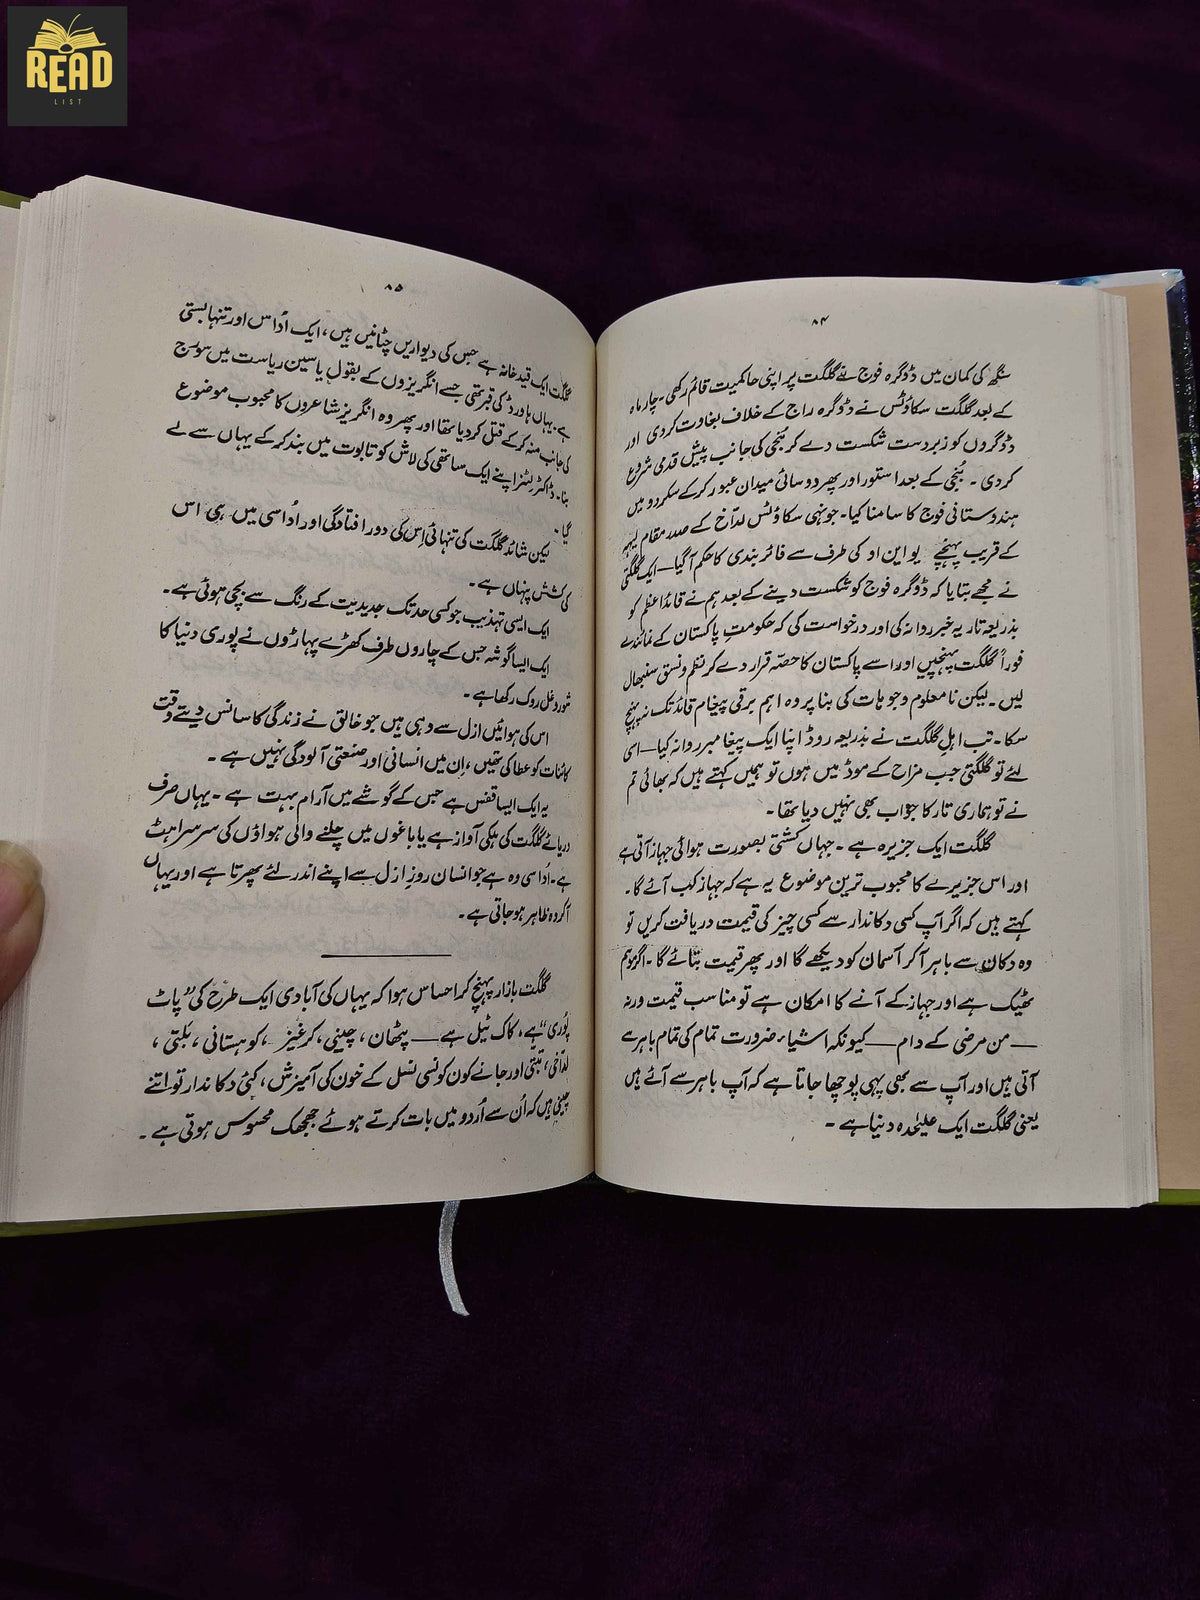 READ
LIST
۸۴
سنگھ کی کمان میں ڈوگرہ فوج نے گلگت پر اپنی حاکمیت قائم رکھی۔ چار ماہ
کے بعد گلگت سکاؤٹس نے ڈوگرہ راج کے خلاف بغاوت کر دی اور
ڈوگروں کو زبردست شکست دے کر بُنجی کی جانب پیش قدمی شروع
کر دی ۔ بُنجی کے بعد استور اور پھر دوسائی میدان عبور کر کے سکردو میں
ہندوستانی فوج کا سامنا کیا۔ جونہی سکاؤٹس لداخ کے صدر مقام لیہہ
کے قریب پہنچے یو این او کی طرف سے فائر بندی کا حکم آ گیا — ایک گلگتی
نے مجھے بتایا کہ ڈوگرہ فوج کو شکست دینے کے بعد ہم نے قائد اعظم کو
بذریعہ تار یہ خبر روانہ کی اور درخواست کی کہ حکومتِ پاکستان کے نمائندے
فوراً گلگت پہنچیں اور اسے پاکستان کا حصّہ قرار دے کر نظم و نسق سنبھال
لیں ۔ لیکن نامعلوم وجوہات کی بنا پر وہ اہم برقی پیغام قائد تک نہ پہنچ
سکا۔ تب اہلِ گلگت نے بذریعہ روڈ اپنا ایک پیغامبر روانہ کیا — اسی
لئے تو گلگتی جب مزاح کے موڈ میں ہوں تو ہمیں کہتے ہیں کہ بھائی تم
نے تو ہماری تار کا جواب بھی نہیں دیا تھا۔
گلگت ایک جزیرہ ہے ۔ جہاں کشتی بصورت ہوائی جہاز آتی ہے
اور اس جزیرے کا محبوب ترین موضوع یہ ہے کہ جہاز کب آئے گا۔
کہتے ہیں کہ اگر آپ کسی دکاندار سے کسی چیز کی قیمت دریافت کریں تو
وہ دکان سے باہر آ کر آسمان کو دیکھے گا اور پھر قیمت بتائے گا ۔ اگر موسم
ٹھیک ہے اور جہاز کے آنے کا امکان ہے تو مناسب قیمت ورنہ
— من مرضی کے دام — کیونکہ اشیاء ضرورت تمام کی تمام باہر سے
آتی ہیں اور آپ سے بھی یہی پوچھا جاتا ہے کہ آپ باہر سے آئے ہیں
یعنی گلگت ایک علیحٰدہ دنیا ہے ۔
۸۵
گلگت ایک قید خانہ ہے جس کی دیواریں چٹانیں ہیں، ایک اُداس اور تنہا بستی
ہے۔ یہاں ہاورڈ کی قبر تھی جسے انگریزوں کے بقول یاسین ریاست میں سورج
کی جانب منہ کر کے قتل کر دیا تھا اور پھر وہ انگریز شاعروں کا محبوب موضوع
بنا۔ ڈاکٹر لٹنر اپنے ایک ساتھی کی لاش کو تابوت میں بند کر کے یہاں سے لے
گیا ۔
لیکن شائد گلگت کی تنہائی اِس کی دور افتادگی اور اُداسی میں ہی اس
کی کشش پنہاں ہے ۔
ایک ایسی تہذیب جو کسی حد تک جدیدیت کے رنگ سے بچی ہوئی ہے۔
ایک ایسا گوشہ جس کے چاروں طرف کھڑے پہاڑوں نے پوری دنیا کا
شور و غل روک رکھا ہے ۔
اس کی ہوائیں ازل سے وہی ہیں جو خالق نے زندگی کا سانس دیتے وقت
کائنات کو عطا کی تھیں، اِن میں انسانی اور صنعتی آلودگی نہیں ہے ۔
یہ ایک ایسا قفس ہے جس کے گوشے میں آرام بہت ہے ۔ یہاں صرف
دریائے گلگت کی ہلکی آواز ہے یا باغوں میں چلنے والی ہواؤں کی سرسراہٹ
ہے۔ اُداسی وہ ہے جو انسان روزِ ازل سے اپنے اندر لئے پھرتا ہے اور یہاں
آ کر وہ ظاہر ہو جاتی ہے ۔
گلگت بازار پہنچ کر احساس ہوا کہ یہاں کی آبادی ایک طرح کی ”پاٹ
پُوری“ ہے، کاک ٹیل ہے — پٹھان ، چینی، کرغیز ، کوہستانی ، بَلتی ،
لداخی، تبّتی اور جانے کون کونسی نسل کے خون کی آمیزش، کئی دکاندار تو اتنے
چینی ہیں کہ اُن سے اُردو میں بات کرتے ہوئے جھجھک محسوس ہوتی ہے ۔